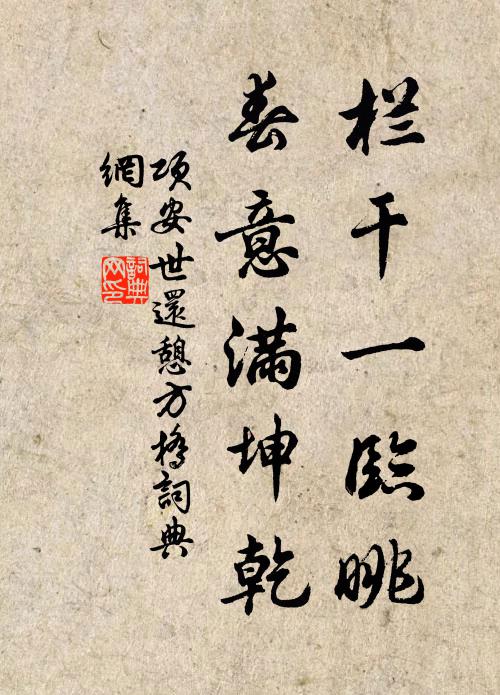 栏干一临眺
春意满坤乾
项安世還憩方橋詞典
網集
詞典
网印